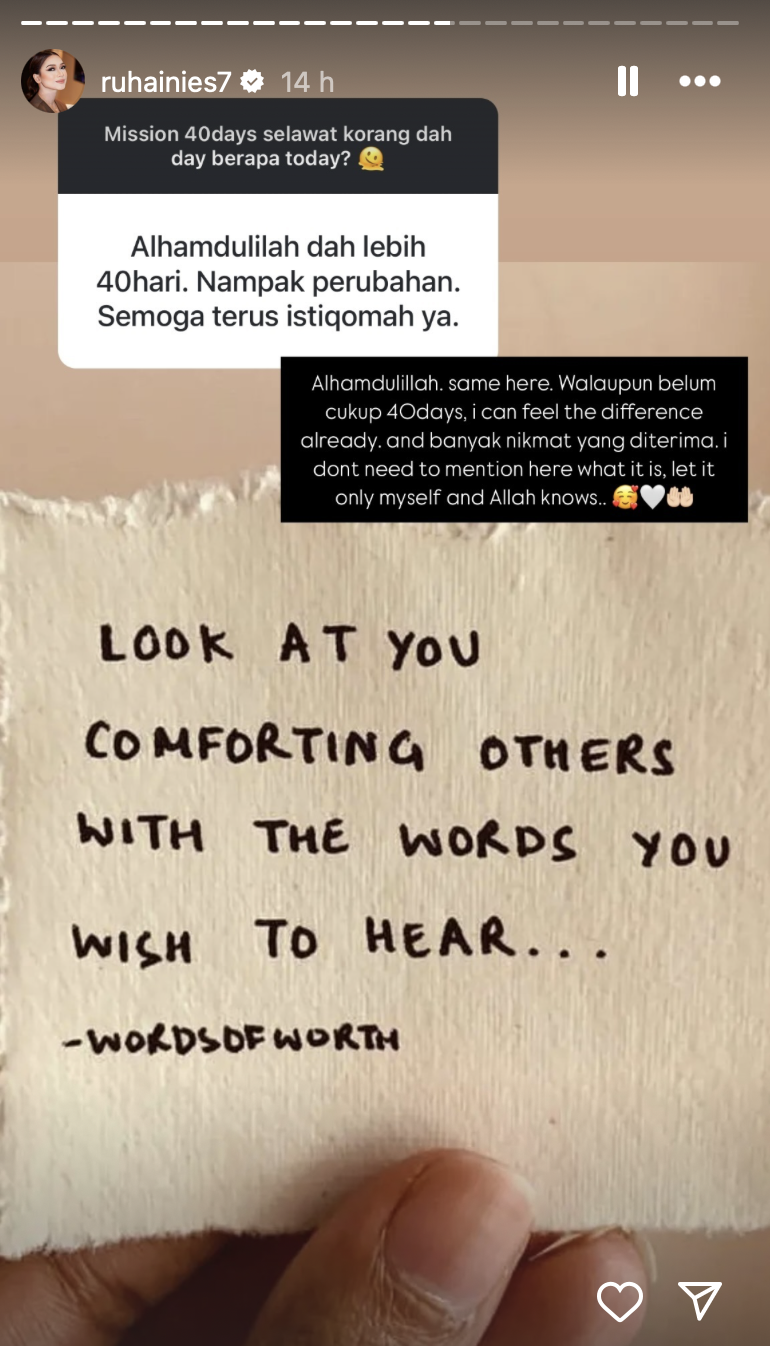 ruhainies7 14 h
Mission 40days selawat korang dah
day berapa today? 🫠
Alhamdulilah dah lebih
40hari. Nampak perubahan.
Semoga terus istiqomah ya.
Alhamdulillah. same here. Walaupun belum
cukup 40days, i can feel the difference
already. and banyak nikmat yang diterima. i
dont need to mention here what it is, let it
only myself and Allah knows.. 🥰🤍🤲🏻
LOOK AT YOU
COMFORTING OTHERS
WITH THE WORDS YOU
WISH TO HEAR...
-WORDSOFWORTH